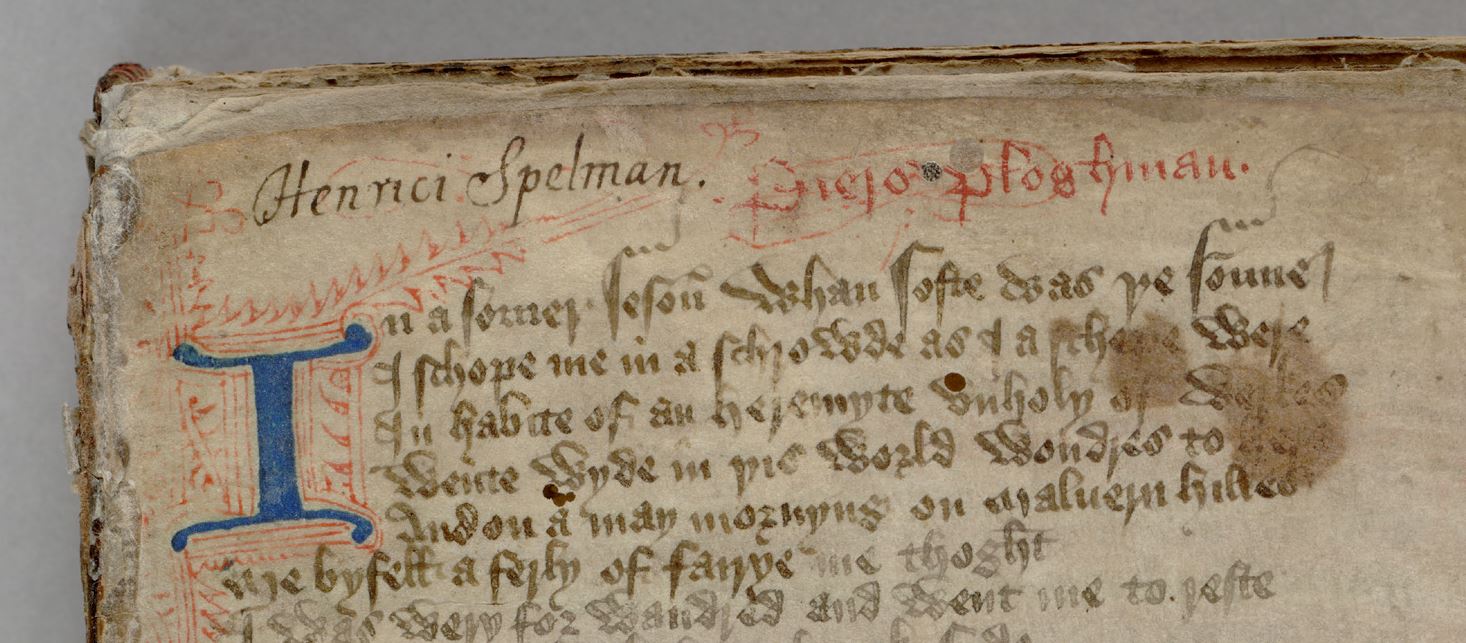 Henrici Spelman. Piers Ploghman.
In a somer seson̄ whan softe was þe sonne
I schope me in a schrowde as I a schepe were
In habite of an heremyte vnholy of werkes
Wente wyde in þis world wondres to
And on a may mornyng on maluern hilles
Me byfell a ferly of fairye me thoght
I was wery for wandred and went me to reste